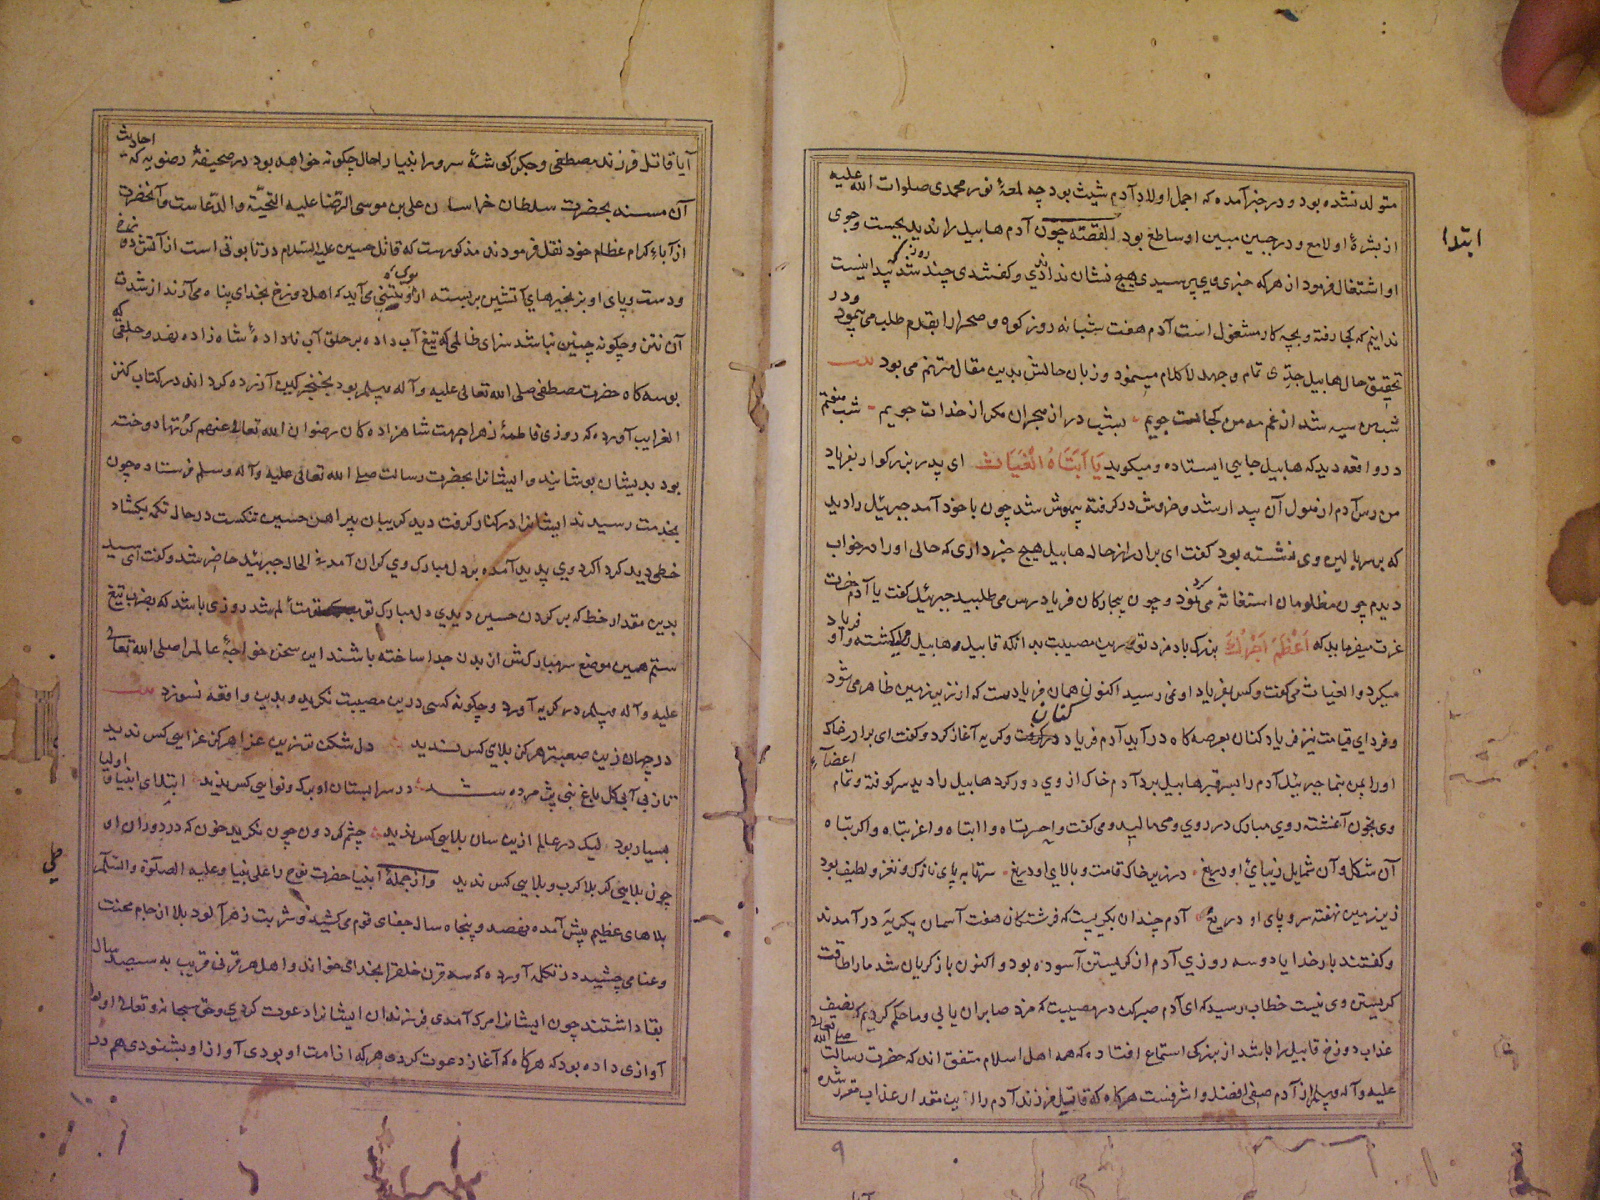 متولد نشده بود و در خبر آمده که اجمل اولاد آدم شیث بود چه لمعهٔ نور محمدی صلوات الله علیه
از بشرهٔ او لامع و در جبین مبین او ساطع بود القصّه چون آدم هابیل را ندید بجست و جوی
ابتدا
او اشتغال فرمود از هر که خبری وی پرسیدی هیچ نشان ندادندی و گفتندی چند روز شد که پیدا نیست
ندانیم که کجا رفته و بچه کار مشغول است آدم هفت شبانه روز کوه و صحرا را بقدم طلب می پیمود و در
تحقیق حال هابیل جدّی تمام و جهد لاکلام مینمود و زبان حالش بدین مقال مترنم می بود بیت
شب من سیه شد از غم مه من کجاست جویم بشب دراز هجران مگر از خدات جویم شب هفتم
در واقعه دید که هابیل جایی ایستاده و میگوید یَا اَبَتَاهُ الْغِیَاث ای پدر بزرگوار بفریاد
من رس آدم از هول آن بیدار شد و خروش در گرفته بیهوش شد چون باخود آمد جبرئیل را دید
که بر سر بالین وی نشسته بود گفت ای برادر از حال هابیل هیچ خبر داری که حالی او را در خواب
دیدم چون مظلومان استغاثه می نمود و چون بیچارگان فریاد رس می طلبید جبرئیل گفت یا آدم حضرت
عزت میفرماید که اَعْظَمَ اَجْرَكَ بزرگ باد مزد تو درین مصیبت بدانکه قابیل هابیل را بکشته و او فریاد
میکرد و الغیاث می گفت و کس بفریاد او نمی رسید اکنون همان فریادست که از زیر زمین ظاهر می شود
و فردای قیامت نیز فریاد کنان بعرصه گاه در آید آدم فریاد در گرفت و گریه آغاز کرد و گفت ای برادر خاک
کنان
او را بمن بنما جبرئیل آدم را بسر قبر هابیل برد آدم خاک از وی دور کرد هابیل را دید سر کوفته و تمام اعضاء
وی بخون آغشته روی مبارک در روی وی می مالید و می گفت واحسرتاه وا ابتاه واغربتاه واکربتاه
آن شکل و آن شمایل زیبای او دریغ در زیر خاک قامت و بالای او دریغ سرتا به پای نازک و نغز و لطیف بود
زیر زمین نهفته سر و پای او دریغ آدم چندان بگریست که فرشتگان هفت آسمان بگریه در آمدند
و گفتند بار خدایا دو سه روزی آدم از گریستن آسوده بود و اکنون باز گریان شد ما را طاقت
گریستن وی نیست خطاب رسید که ای آدم صبر کن در مصیبت که مزد صابران یابی و ما حکم کردیم که نصف
عذاب دوزخ قابیل را باشد از بزرگی استماع افتاده که همه اهل اسلام متفق اند که حضرت رسالت صلی الله تعالی
علیه و آله وسلم از آدم صفی افضل و اشرفست هرگاه که قاتل فرزند آدم را این مقدار عذاب مقرر شده
۹
آیا قاتل فرزند مصطفی و جگر گوشهٔ سرور انبیا را حال چگونه خواهد بود در صحیفهٔ رضویه که احادیث
آن مسند بحضرت سلطان خراسان علی بن موسی الرضا علیه التحیّة والدعاست و آنحضرت
از آباء کرام عظام خود نقل فرمودند مذکورست که قاتل حسین علیه السلام در تابوتی است از آتش
و دست و پای او بزنجیرهای آتشین بربسته از وی بوی نتنی می آید که اهل دوزخ بخدای پناه می آرند از شدت
آن نتن و چگونه چنین نباشد سزای ظالمی که تیغ آب داده بر حلق آب نداده شاه زاده نهد و حلقی که
بوسه گاه حضرت مصطفی صلی الله تعالی علیه و آله وسلم بود بخنجر کین آزرده کرد اند در کتاب کنز
الغرایب آورده که روزی فاطمهٔ زهرا جهت شاهزاده کان رضوان الله تعالی عنهم کرتها دوخته
بود بدیشان پوشانید و ایشانرا بحضرت رسالت صلی الله تعالی علیه و آله وسلم فرستاد چون
بخدمت رسیدند ایشانرا در کنار گرفت دید گریبان پیراهن حسین تنگست در حال تکمه بگشاد
خطی دید کرد اکرد وی پدید آمده بر دل مبارک وی گران آمد فی الحال جبرئیل حاضر شد و گفت ای سید
بدین مقدار خط که بر گردن حسین دیدی دل مبارک تو متألم شد روزی باشد که بضرب تیغ
ستم همین موضع سر مبارکش از بدن جدا ساخته باشند این سخن خواجهٔ عالم را صلی الله تعالی
علیه و آله وسلم در گریه آورد و چگونه کسی درین مصیبت نگرید و بدین واقعه نسوزد بیت
در جهان زین صعبتر هرگز بلای کس ندید دل شکن تر زین عزا هرگز عزایی کس ندید
تا ز بی آبی گل باغ نبی پژمرده شد در سرابستان او برگ و نوایی کس ندید ابتلای انبیا و اولیا
بسیار بود لیک در عالم ازین سان بلایی کس ندید چشم گردون چون نگرید خون که در دوران او
چون بلایی کز بلا کرب و بلایی کس ندید و از جملهٔ انبیا حضرت نوح را علی نبینا و علیه الصلوة والسلام
بلاهای عظیم پیش آمده نهصد و پنجاه سال جفای قوم می کشید و شربت زهر آلود بلا از جام محنت
و عنا می چشید در تکمله آورده که سه قرن خلق را بخدا می خواند و اهل هر قرنی قریب به سیصد سال
بقا داشتند چون ایشانرا مرگ آمدی فرزندان ایشانرا دعوت کردی و حق سبحانه و تعالی او را
آوازی داده بود که هرگاه که آغاز دعوت کردی هر که از امت او بودی آواز او بشنودی هم در